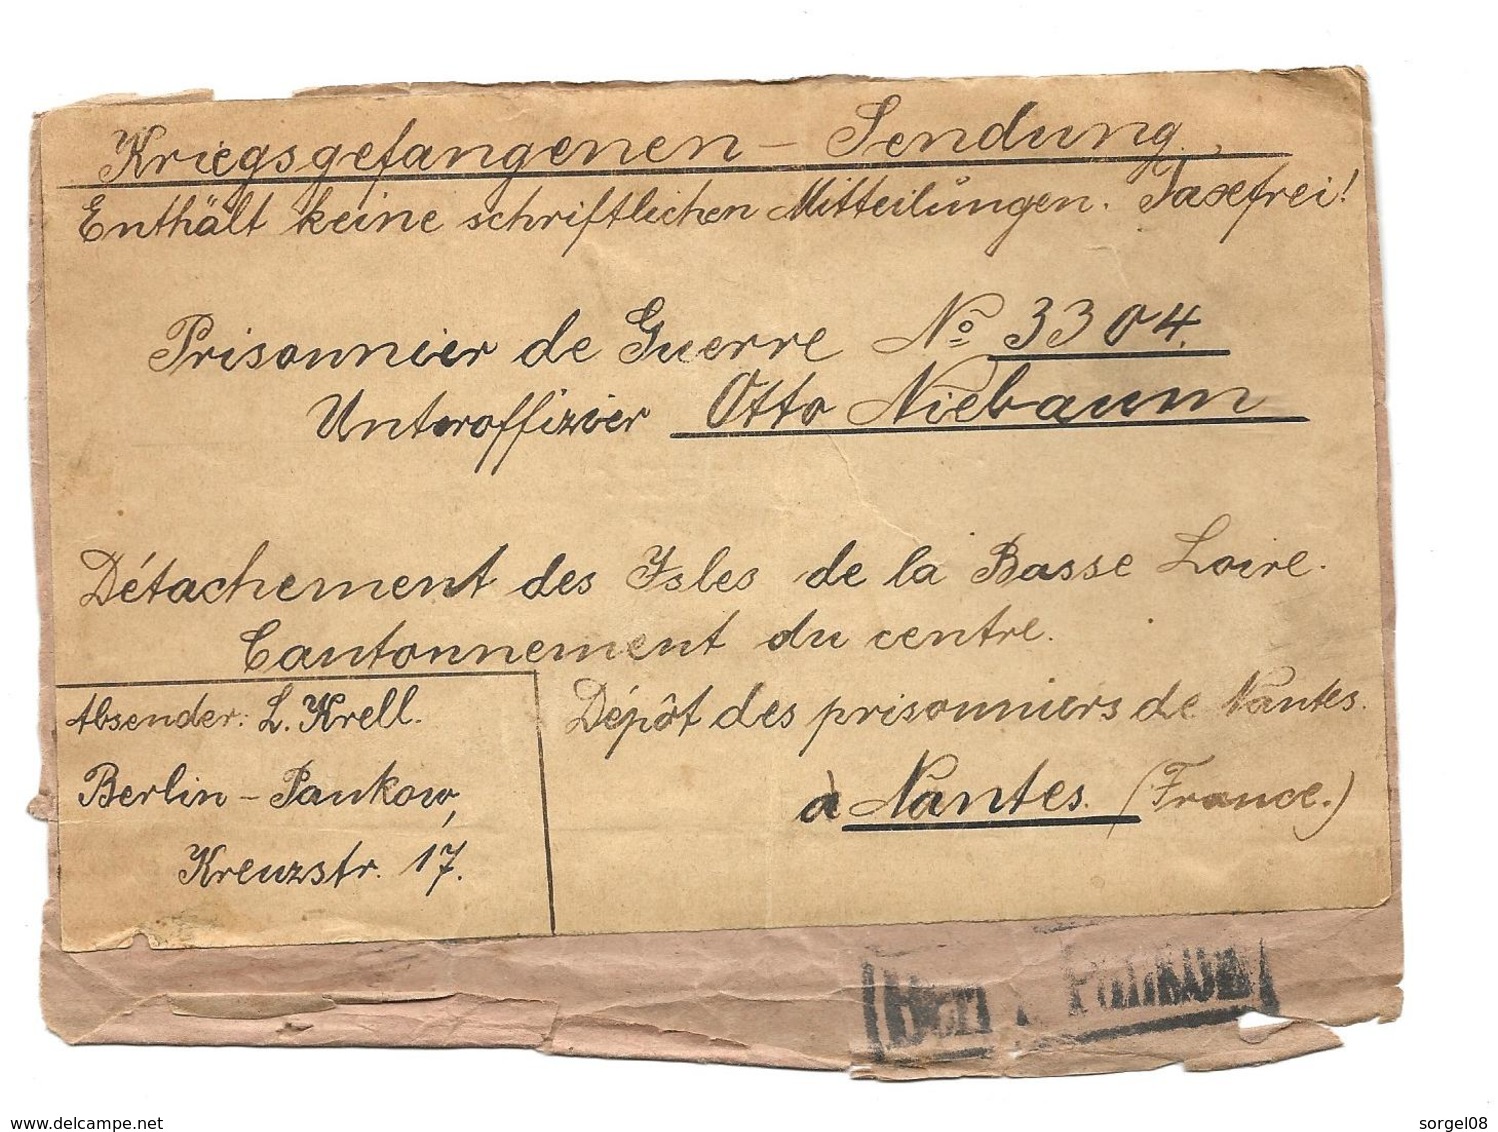 Kriegsgefangenen – Sendung.
Enthält keine schriftlichen Mitteilŭngen. Taxefrei!
Prisonnier de Guerre No 3304.
Unteroffizier Otto Niebaum
Détachement des Isles de la Basse Loire.
Cantonnement du centre.
Dépôt des prisonniers de Nantes.
à Nantes. (France.)
Absender: L. Krell.
Berlin – Pankow,
Kreuzstr. 17.
Pankow
www.delcampe.net
sorgel08